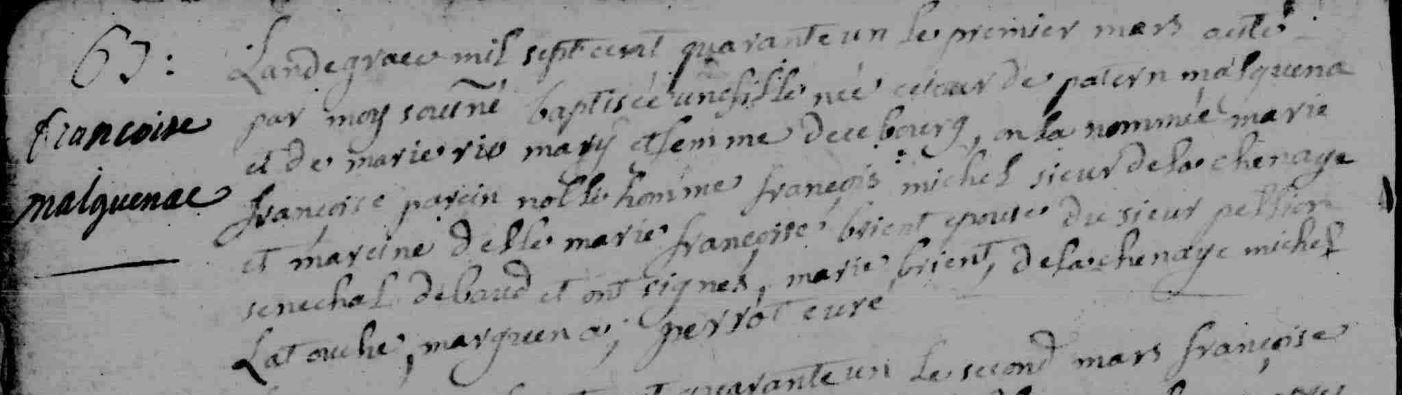 63:
francoise
malquenac
Lan de grace mil sept cent quarante un le premier mars a eté
par moy sousné baptisée une fille née ce jour de patern malquena
et de marie rio mary et femme de ce bourg, on la nommée marie
françoise parein noble homme françois michel sieur de la chenaye
et mareine delle marie françoise brient epouse du sieur pellion
senechal de baud et ont signes, marie brient, de la chenaye michel
Latouche, marquena, perrot curé
quarante un le second mars françoise